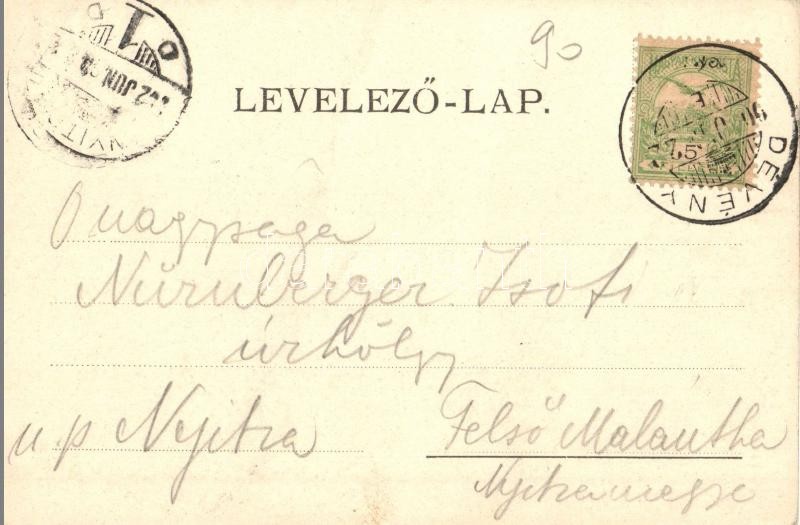 90
LEVELEZŐ-LAP.
NYITRA
902 JUN
DÉVÉNY
Önagysága
Nürnberger Zsofi
úrhölgy
u.p Nyitra
Felső Malántha
Nyitramegye